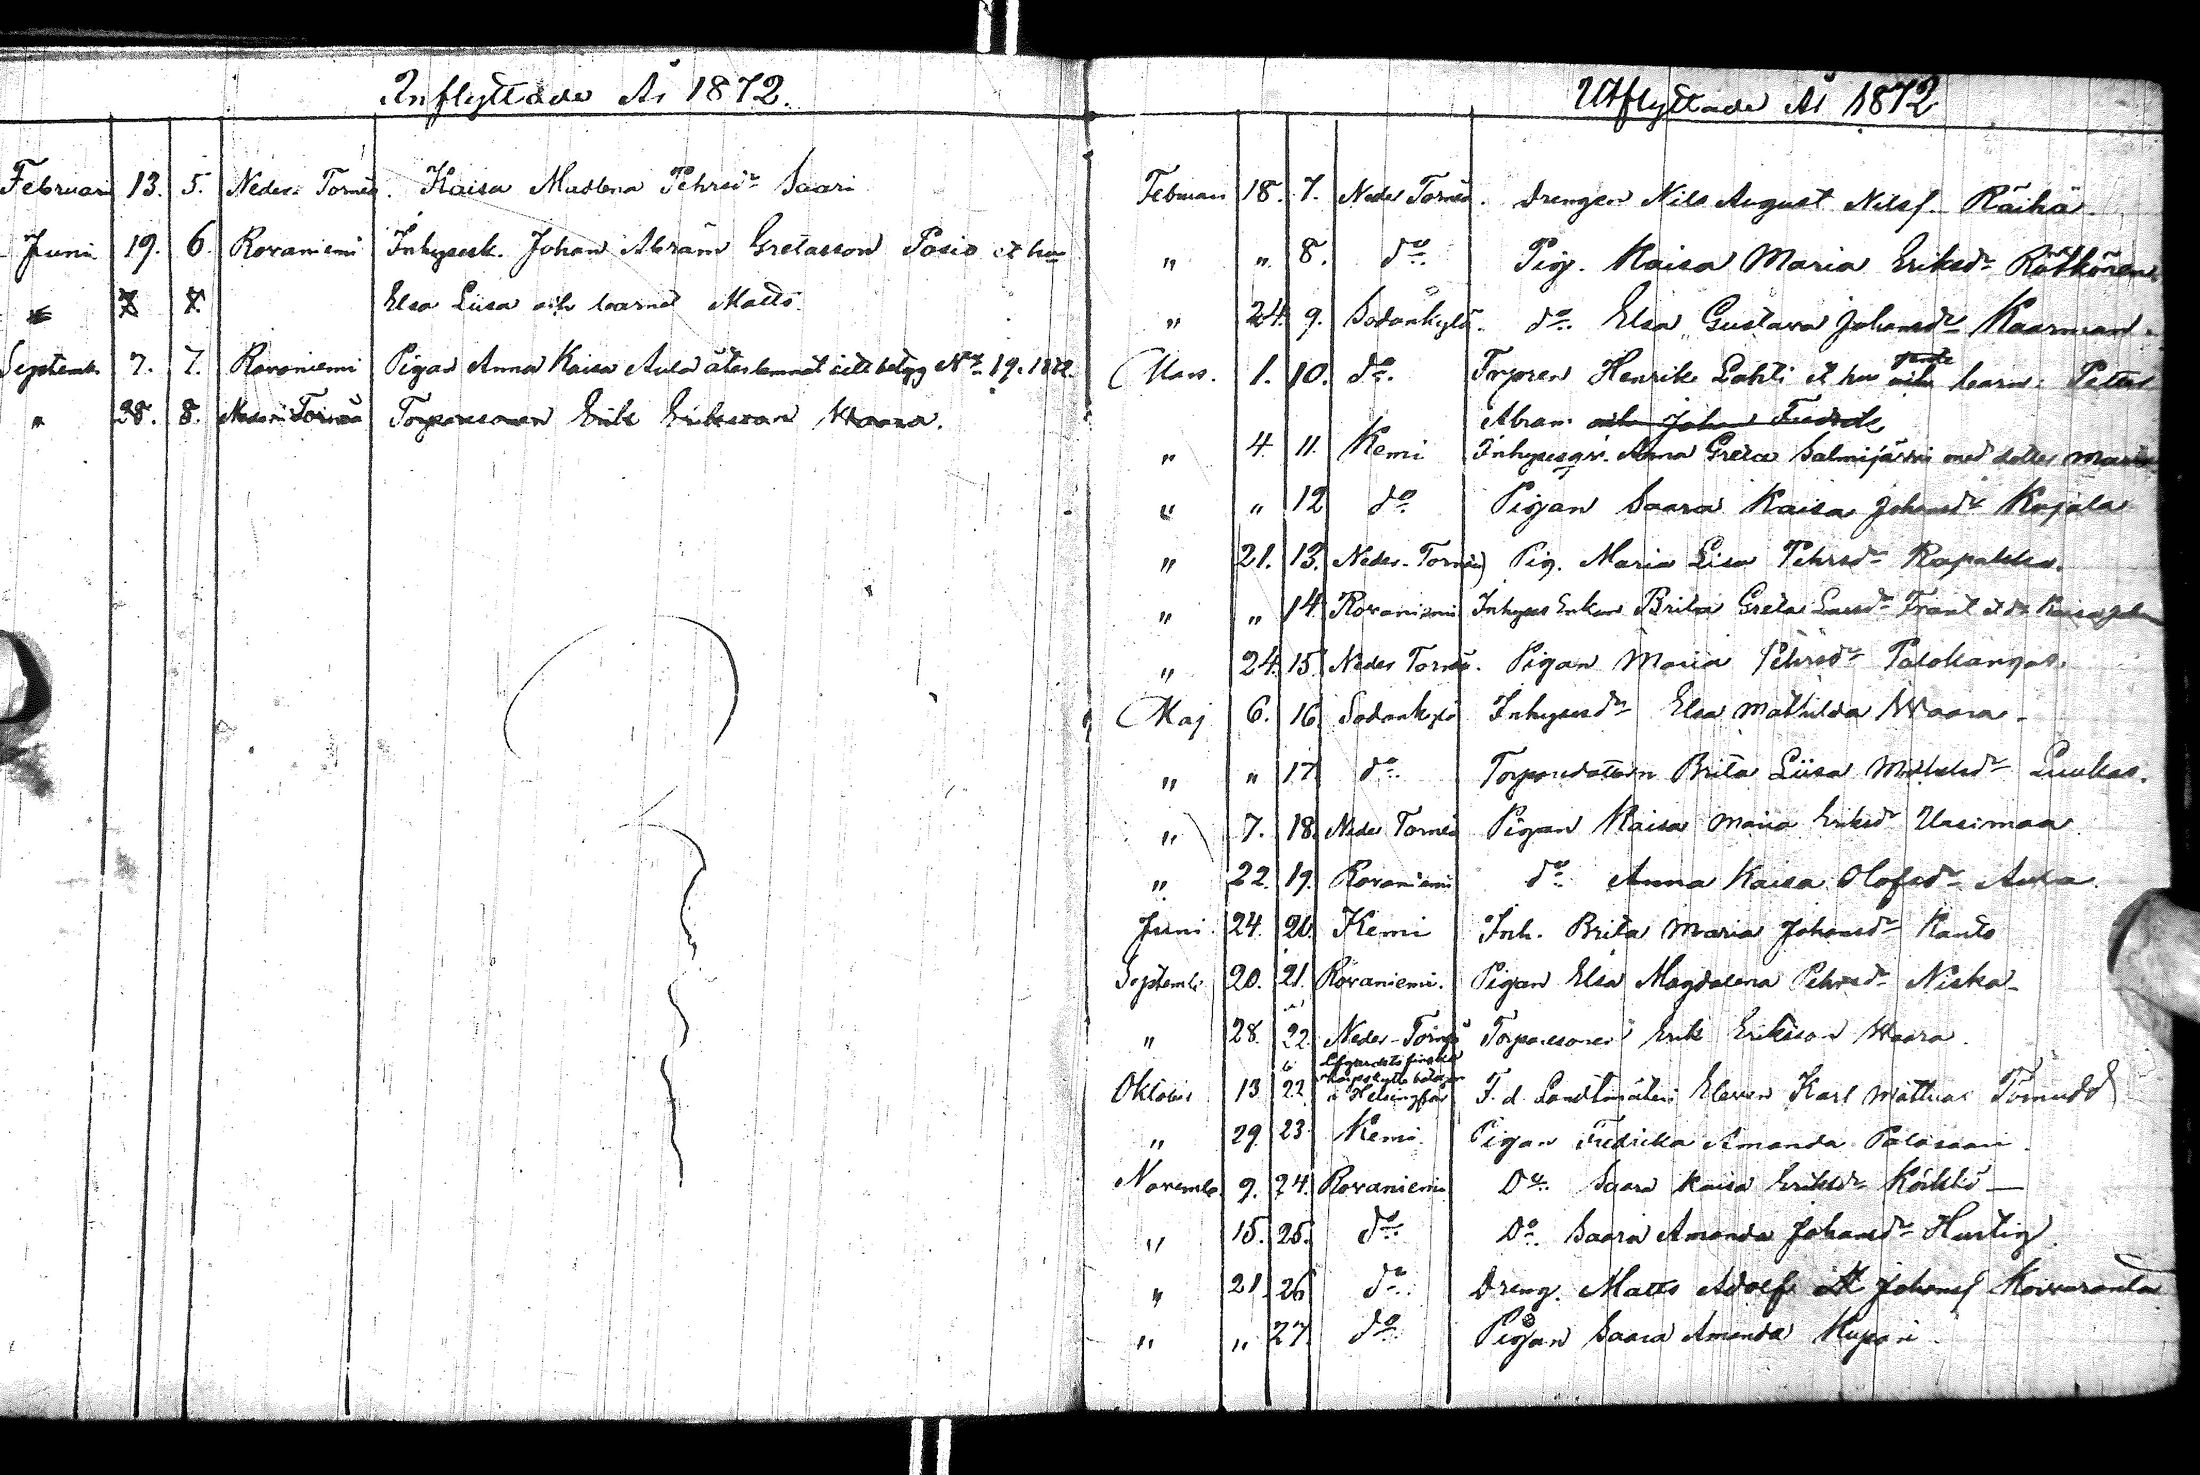 Inflyttade År 1872.
Februari 13. 5. Neder Torneå. Kaisa Madlena Pehrsdr Saari
Juni 19. 6. Rovaniemi Inhysesk. Johan Abram Gretasson Posio et hu
Elsa Liisa och barnet Matts.
Septemb 7. 7. Rovaniemi Pigan Anna Kaisa Aula återlemnat sitt betyg No 19. 1872.
" 28. 8. Neder Torneå Torparesonen Erik Eriksson Waara.
Utflyttade År 1872
Februari 18. 7. Neder Torneå. Drengen Nils August Nilsf. Räihä.
" " 8. do. Pig. Kaisa Maria Eriksdr
" 24. 9. Sodankylä. do. Elsa Gustava Johansdr Kaarman.
Mars. 1. 10. do. Torparen Henrik Lahti et hu barn: Petter
Abram och Johan Fredrik
" 4. 11. Kemi Inhysesqv. Anna Greta Salmijärvi med dotter Maria
" " 12 do. Pigan Saara Kaisa Johansdr Kojola
" 21. 13. Neder-Torneå Pig. Maria Lisa Pehrsdr Rapakko.
" " 14 Rovaniemi Inhyses Enkan Brita Greta Larsdr Frant et dr Kaisa
" 24. 15. Neder Torneå. Pigan Maria Pehrsdr Palokangas.
Maj 6. 16. Sodankylä Inhysesdr Elsa Mathilda Waara.
" " 17 do. Torparedottern Brita Liisa Mickelsdr Luukas.
" 7. 18. Neder Torneå Pigan Kaisa Maria Eriksdr Uusimaa
" 22. 19. Rovaniemi do. Anna Kaisa Olofsdr Aula.
Juni. 24. 20. Kemi Inh. Brita Maria Johansdr Kauto
Septemb. 20. 21. Rovaniemi. Pigan Elsa Magdalena Pehrsdr Niska
" 28. 22. Neder-Torneå Torparesonen Erik Eriksson Waara.
Lifgardets finska skarpskytte bataljon
Oktober 13 22 i Helsingfors F. d. Landtmäteri Eleven Karl Matthias Törnudd
" 29. 23. Kemi. Pigan Fredrika Amanda Palosaari.
Novemb. 9. 24. Rovaniemi Do. Saara Kaisa Eriksdr Körkkö
" 15. 25. do. Do. Saara Amanda Johansdr Hurtig.
" 21. 26 do. Dreng. Matts Adolf Johansf Koivuranta
" " 27. do. Pigan Saara Amanda Kupari.